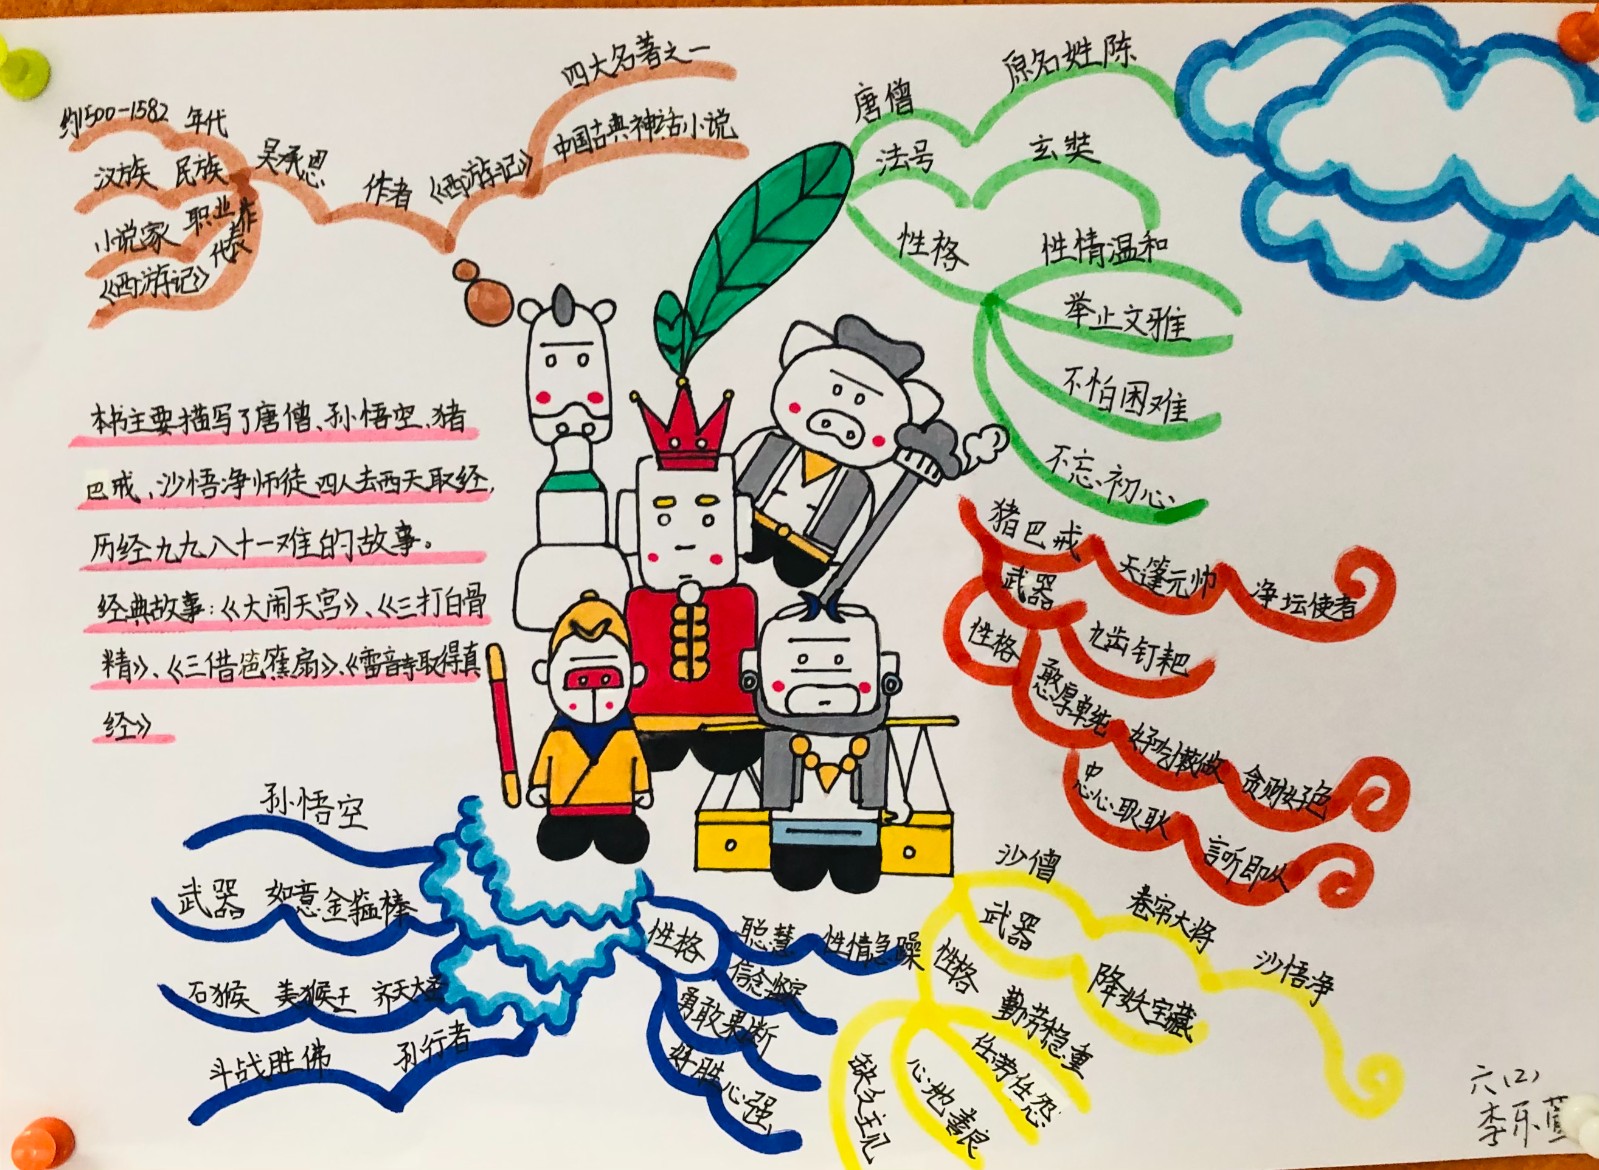 四大名著之一
中国古典神话小说
约1500-1582 年代
汉族 民族
小说家 职业
代表作
《西游记》
吴承恩
作者
《西游记》
本书主要描写了唐僧、孙悟空、猪
巴戒、沙悟净师徒四人去西天取经,
历经九九八十一难的故事。
经典故事:《大闹天宫》、《三打白骨
精》、《三借芭蕉扇》、《雷音寺取得真
经》
唐僧
原名姓陈
法号
玄奘
性格
性情温和
举止文雅
不怕困难
不忘初心
猪巴戒
天蓬元帅
净坛使者
武器
九齿钉耙
性格
憨厚单纯
好吃懒做
贪财好色
忠心耿耿
言听即从
孙悟空
武器 如意金箍棒
石猴 美猴王 齐天大圣
斗战胜佛 孙行者
性格
聪慧 性情急躁
信念坚定
勇敢果断
好胜心强
沙僧
卷帘大将
沙悟净
武器
降妖宝藏
性格
勤劳稳重
任劳任怨
心地善良
缺乏主见
六(2)
李乐萱